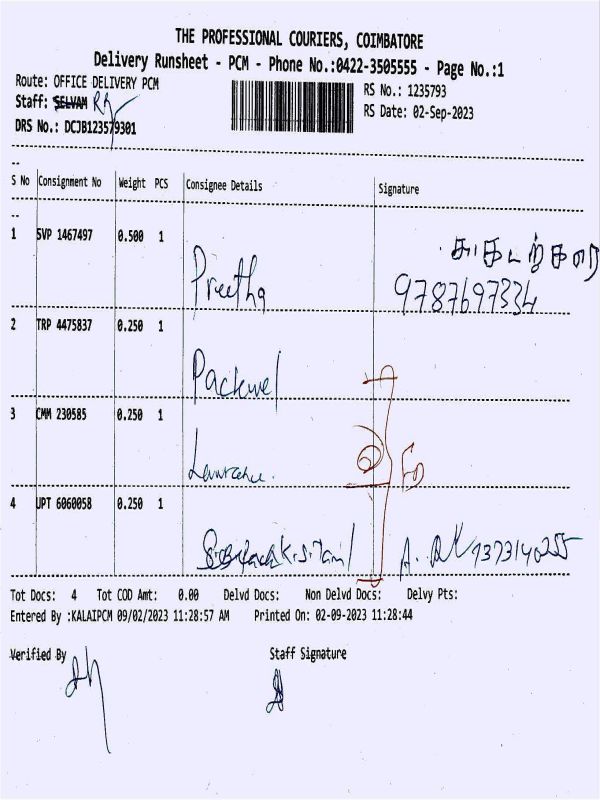 THE PROFESSIONAL COURIERS, COIMBATORE
Delivery Runsheet - PCM - Phone No.:0422-3505555 - Page No.:1
Route: OFFICE DELIVERY PCM
RS No.: 1235793
Staff: SELVAM
RS Date: 02-Sep-2023
DRS No.: DCJB123579301
S No Consignment No Weight PCS Consignee Details Signature
1 SVP 1467497 0.500 1
Preetha 9787697334
2 TRP 4475837 0.250 1
Packwel
3 CMM 230585 0.250 1
4 UPT 6060058 0.250 1
Tot Docs: 4 Tot COD Amt: 0.00 Delvd Docs: Non Delvd Docs: Delvy Pts:
Entered By :KALAIPCM 09/02/2023 11:28:57 AM Printed On: 02-09-2023 11:28:44
Verified By Staff Signature